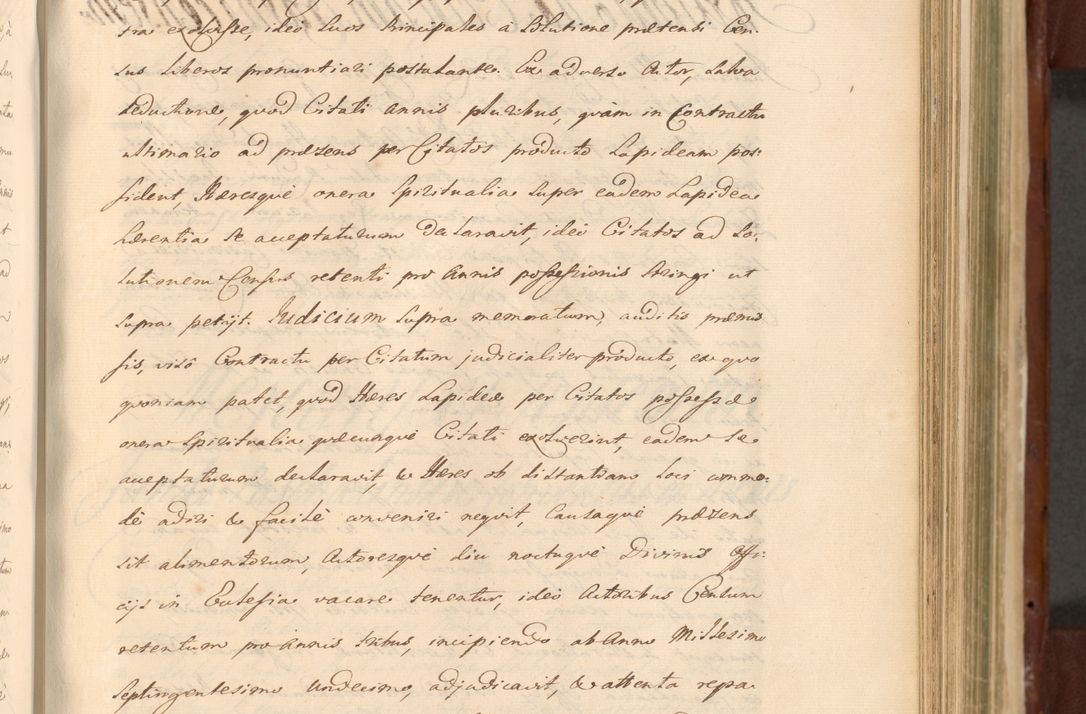 tra exolvisse, ideó suos Principales á Solutione prætensi Cen-
sus Liberos pronuntiari postulante. Ex adverso Actor, Salva
deductione, quód Citati annis pluribus, quàm in Contractu
ultimario ad præsens per Citatos producto Lapideam pos:
sident, Hæresquè onera Spiritualia super eadem Lapidea
hærentia se acceptaturum declaravit, ideó Citatos ad So:
lutionem Census retenti pro Annis possessionis stringi ut
supra petijt. Judicium supra memoratum, auditis præmis
sis, visô Contractu per Citatum judicialiter producto, ex quo
quoniam patet, quód Hæres Lapideæ per Citatos possessæ
onera Spiritualia quæcunquè Citati exolverint, eadem se
acceptaturum declaravit, & Hæres ob distantiam loci commo:
dè adiri & facilè conveniri nequit, Causaquè præsens
sit alimentorum, Actoresquè diu noctuquè Divinis Offi:
cijs in Ecclesia vacare tenentur, ideó Actoribus Censum
retentum pro Annis tribus, incipiendo ab Anno Millesimo
Septingentesimo Undecimo, adjudicavit, & attenta repa